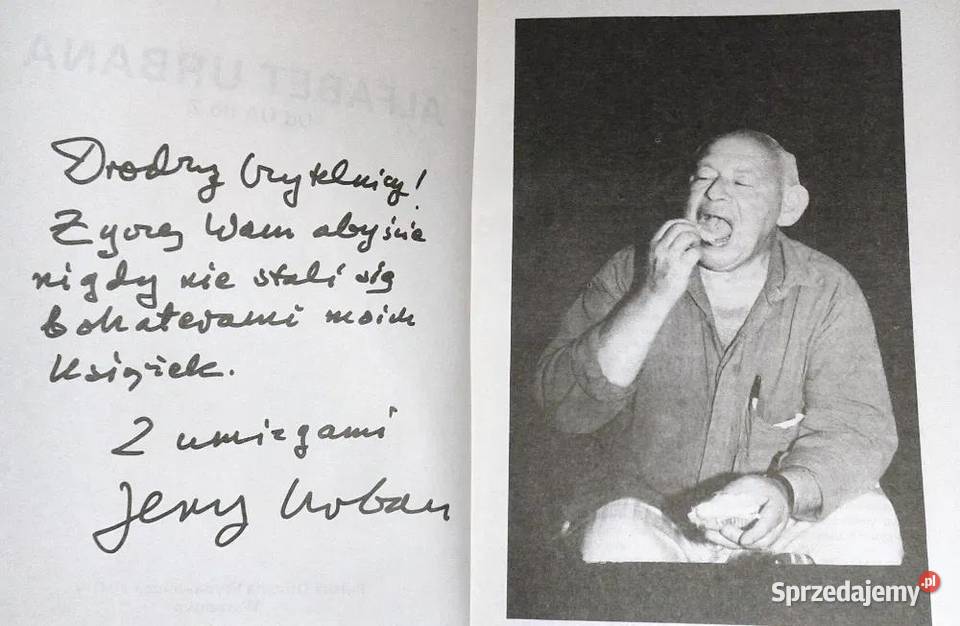 ALFABET URBANA
Drodzy Czytelnicy!
Życzę Wam abyście
nigdy nie stali się
bohaterami moich
książek.
Z umizgami
Jerzy Urban
Sprzedajemy.pl